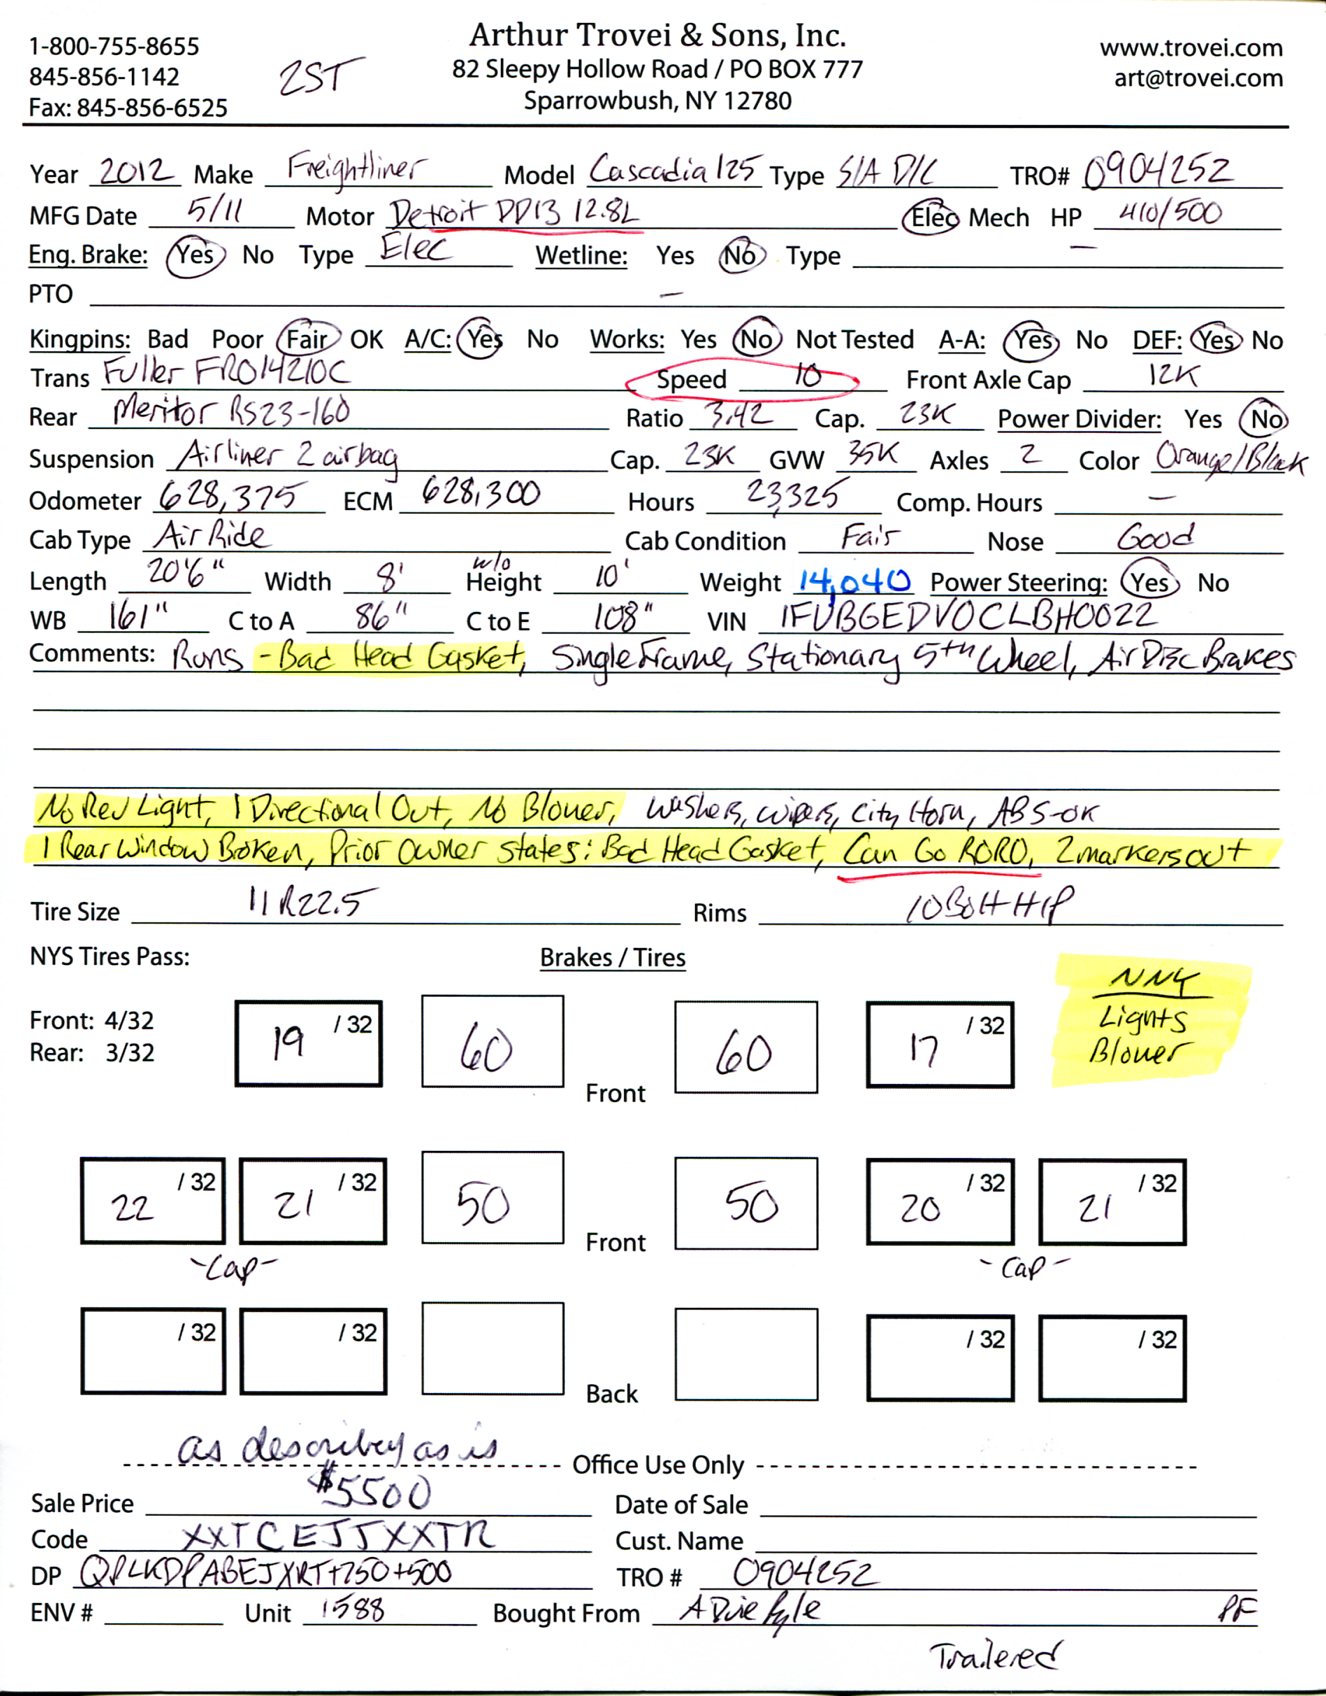 1-800-755-8655
845-856-1142
Fax: 845-856-6525
2ST
Arthur Trovei & Sons, Inc.
82 Sleepy Hollow Road / PO BOX 777
Sparrowbush, NY 12780
www.trovei.com
art@trovei.com
Year 2012 Make Freightliner Model Cascadia 125 Type S/A D/C TRO# 0904252
MFG Date 5/11 Motor Detroit DD13 12.8L Elec Mech HP 410/500
Eng. Brake: Yes No Type Elec Wetline: Yes No Type —
PTO —
Kingpins: Bad Poor Fair OK A/C: Yes No Works: Yes No Not Tested A-A: Yes No DEF: Yes No
Trans Fuller FRO14210C Speed 10 Front Axle Cap 12K
Rear Meritor RS23-160 Ratio 3.42 Cap. 23K Power Divider: Yes No
Suspension Airliner 2 airbag Cap. 23K GVW 35K Axles 2 Color Orange/Black
Odometer 628,375 ECM 628,300 Hours 23,325 Comp. Hours —
Cab Type Air Ride Cab Condition Fair Nose Good
Length 20'6" Width 8' w/o Height 10' Weight 14,040 Power Steering: Yes No
WB 161" C to A 86" C to E 108" VIN 1FUBGEDV0CLBH0022
Comments: Runs - Bad Head Gasket, Single Frame, Stationary 5th Wheel, Air Disc Brakes
No Rev Light, 1 Directional Out, No Blower, Washers, Wipers, City Horn, ABS-OK
1 Rear Window Broken, Prior Owner States: Bad Head Gasket, Can Go RORO, 2 markers out
Tire Size 11R22.5 Rims 10 Bolt H/P
NYS Tires Pass: Brakes / Tires
NNY
Lights
Blower
Front: 4/32
Rear: 3/32
19 /32 60 Front 60 17 /32
22 /32 21 /32 50 Front 50 20 /32 21 /32
-Cap- -Cap-
/32 /32 Back /32 /32
as described as is
Office Use Only
Sale Price $5500 Date of Sale
Code XXTCEJJXXTR Cust. Name
DP QPLKDPABEJXRT+750+500 TRO # 0904252
ENV # Unit 1588 Bought From A Duie Pyle PF
Trailered